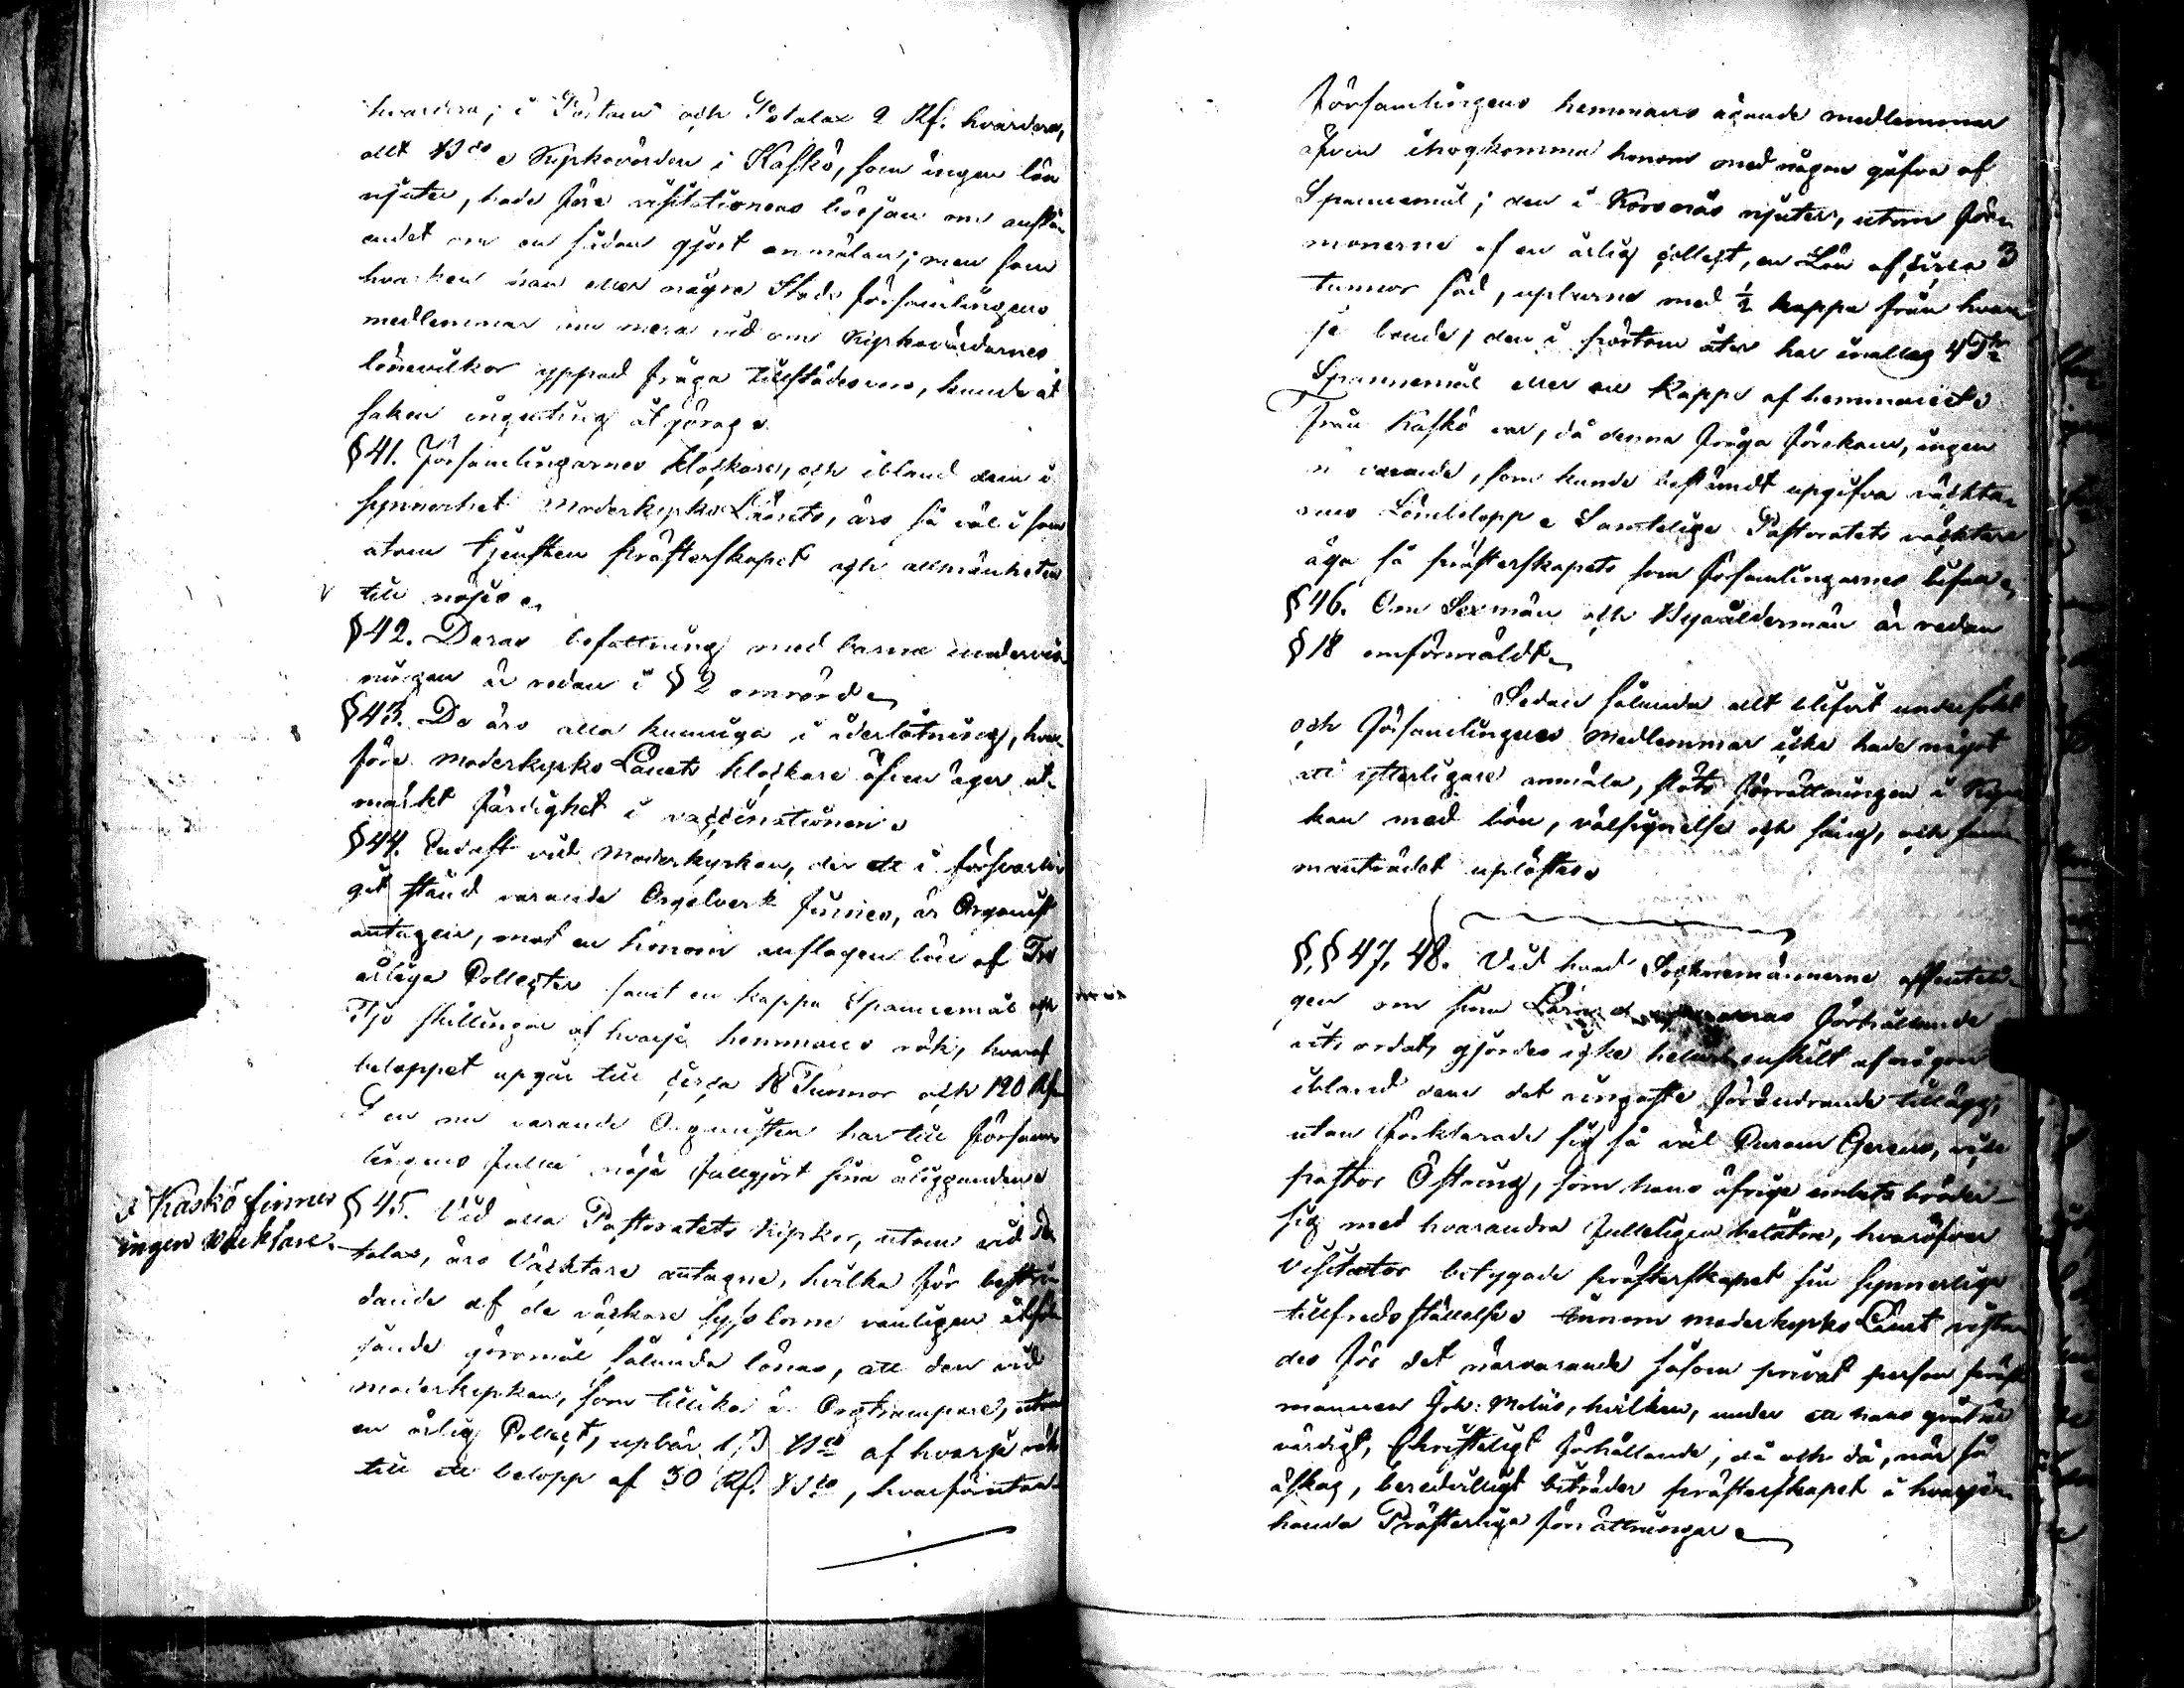 hvardera; i Pörtom och Petalax 2 Rf. hvardera,
allt B:co Kyrkovärden i Kaskö, som ingen lön
njuter, hade före visitationens början om anstän
endet om en sådan gjort anmälan; men som
hvarken han eller några Stads församlingens
medlemmar nu mera vid om Kyrkovärdarnes
lönevilkor yppad fråga tillstädes voro, kunde åt
saken ingenting åtgöras.
§ 41. Församlingarnes Klockare, och ibland dem i
synnerhet Moderkyrko Länets, äro så väl i som
utom tjensten Prästerskapet och allmänheten
till nöjes
§ 42. Deras befattning med barna undervis
ningen är redan i § 2 omrörd
§ 43. De äro alla kunniga i åderlåtning, hvar
före Moderkyrko Länets klockare äfven äger ut
märkt färdighet i vaccinationen
§ 44. Endast vid Moderkyrkan, der ett i försvarli
git stånd varande Orgelverk finnes, är Organist
antagen, mot en honom anslagen lön af Två
årliga Collecter samt en kappa Spannemål och
Tjo skillingar af hvarje hemmans rök, hvaraf
beloppet upgår till circa 18 Tunnor och 120 Rf
Den nu varande Organisten har till församm
lingens fulla nöje fullgjort sina åligganden
I Kaskö finnes
ingen Väktare.
§ 45. Vid alla Pastoratets Kyrkor, utom vid Pe
talax, äro Väcktare antagne, hvilka för bestri
dande af de väcktare sysslorne vanligen åtföl
jande göromål sålunda lönas, att den vid
moderkyrkan, som tillika är Orgtrampare, utom
en årlig Collect, upbär 1 ß B:co af hvarje rök
till ett belopp af 30 Rf. B:co, hvarförutan
församlingens hemmans ägande medlemmar
äfven ihogkomma honom med någon gåfva af
Spannemål; den i Korsnäs njuter, utom för
monerne af en årlig collect, en Lön af circa 3
tunnor säd, upburne med ½ kappa från hvar
je bonde; den i pörtom åter har inalles 4 T:r
Spannemål eller en Kappe af hemmanet
Från Kaskö var, då denna fråga förekom, ingen
närvarande, som kunde bestämdt upgifva väckta
rens Lönbelopp Samtelige Pastoratets väcktare
äga så prästerskapets som församlingarnes bifall
§ 46. Om Sexmän och Byaåldermän är redan
§ 18 omförmäldt
Sedan sålunda allt blifvit undersökt
och församlingens Medlemmar icke hade något
att ytterligare anmäla, slöts förrättningen i Kyr
kan med bön, välsignelse och sång, och sam
manträdet uplöstes
§.§ 47. 48. Vid hvad Socknemännerne offenteli
gen om sina Lärares förhållande
utsordat, gjordes icke heller enskilt af någon
ibland dem det ringaste förändrande tillägg,
utan förklarade sig så väl Curam Gerens, vice
pastor Östring, som hans öfriga embets bröder
sig med hvarandra fulleligen belåtne, hvaröfver
Visitator betygade prästerskapet sin synnerliga
tillfredsställelse Innom moderkyrko Länet vistas
des för det närvarande såsom privat person präst
mannen Joh: Melius, hvilken, under ett hans
värdigt, Christeligt förhållande, då och då, när så
äskas, beredvilligt biträder prästerskapet i hvarje
handa Prästerliga förrättningar